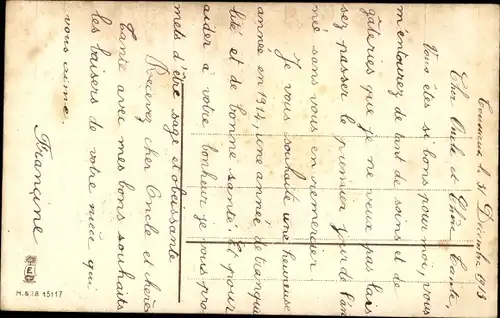 le 31 Décembre 1913
Cher Oncle et Chère Tante,
Vous êtes si bons pour moi, vous
m'entourez de tant de soins et de
gâteries que je ne veux pas lais
sez passer le premier jour de l'an
né sans vous en remercier
Je vous souhaite une heureuse
année en 1914, une année de tranqui
lité et de bonne santé. Et pour
aider à votre bonheur je vous pro
mets d'être sage et obéissante
Recevez cher Oncle et chère
Tante avec mes bons souhaits
les baisers de votre nièce qui
vous aime.
Francine
M.S.i.B 15117